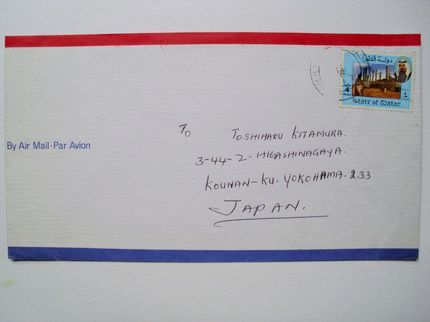 دولة قطر
4 ٤
State of Qatar
By Air Mail·Par Avion
TO
TOSHIHARU KITAMURA.
3-44-2-HIGASHINAGAYA.
KOUNAN-KU-YOKOHAMA.233
JAPAN.